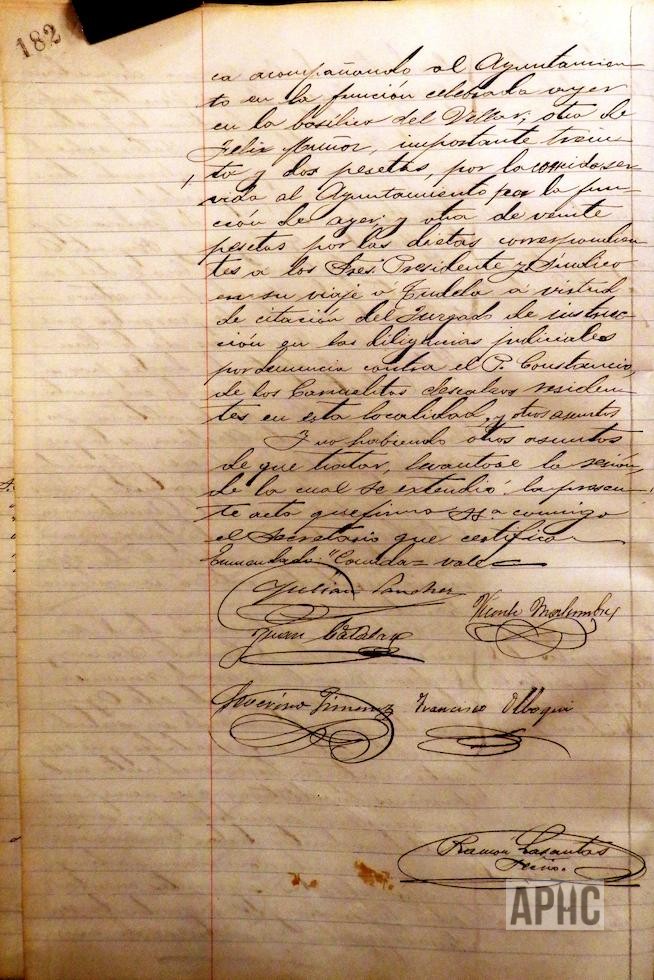 182
ca acompañando al Ayuntamien-
to en la función celebrada ayer
en la basílica del Villar; otra de
Felix Muñoz, importante trein-
ta y dos pesetas, por la comida ser-
vida al Ayuntamiento por la fun-
ción de ayer; y otra de veinte
pesetas por las dietas correspondien-
tes a los Sres. Presidente y Síndico
en su viaje a Tudela a virtud
de citación del Juzgado de instruc-
ción en las diligencias judiciales
por denuncia contra el P. Constancio,
de los Carmelitas descalzos residen-
tes en esta localidad, y otros asuntos
Y no habiendo otros asuntos
de que tratar, levantose la sesión,
de la cual se extendió la presen-
te acta que firma SSª conmigo
el Secretario que certifico
Enmendado: "Comida = vale
Julián Sanchez
Vicente
Juan Catalan
Severino Jimenez Francisco
Ramon Lasantas
Srio.
APHC